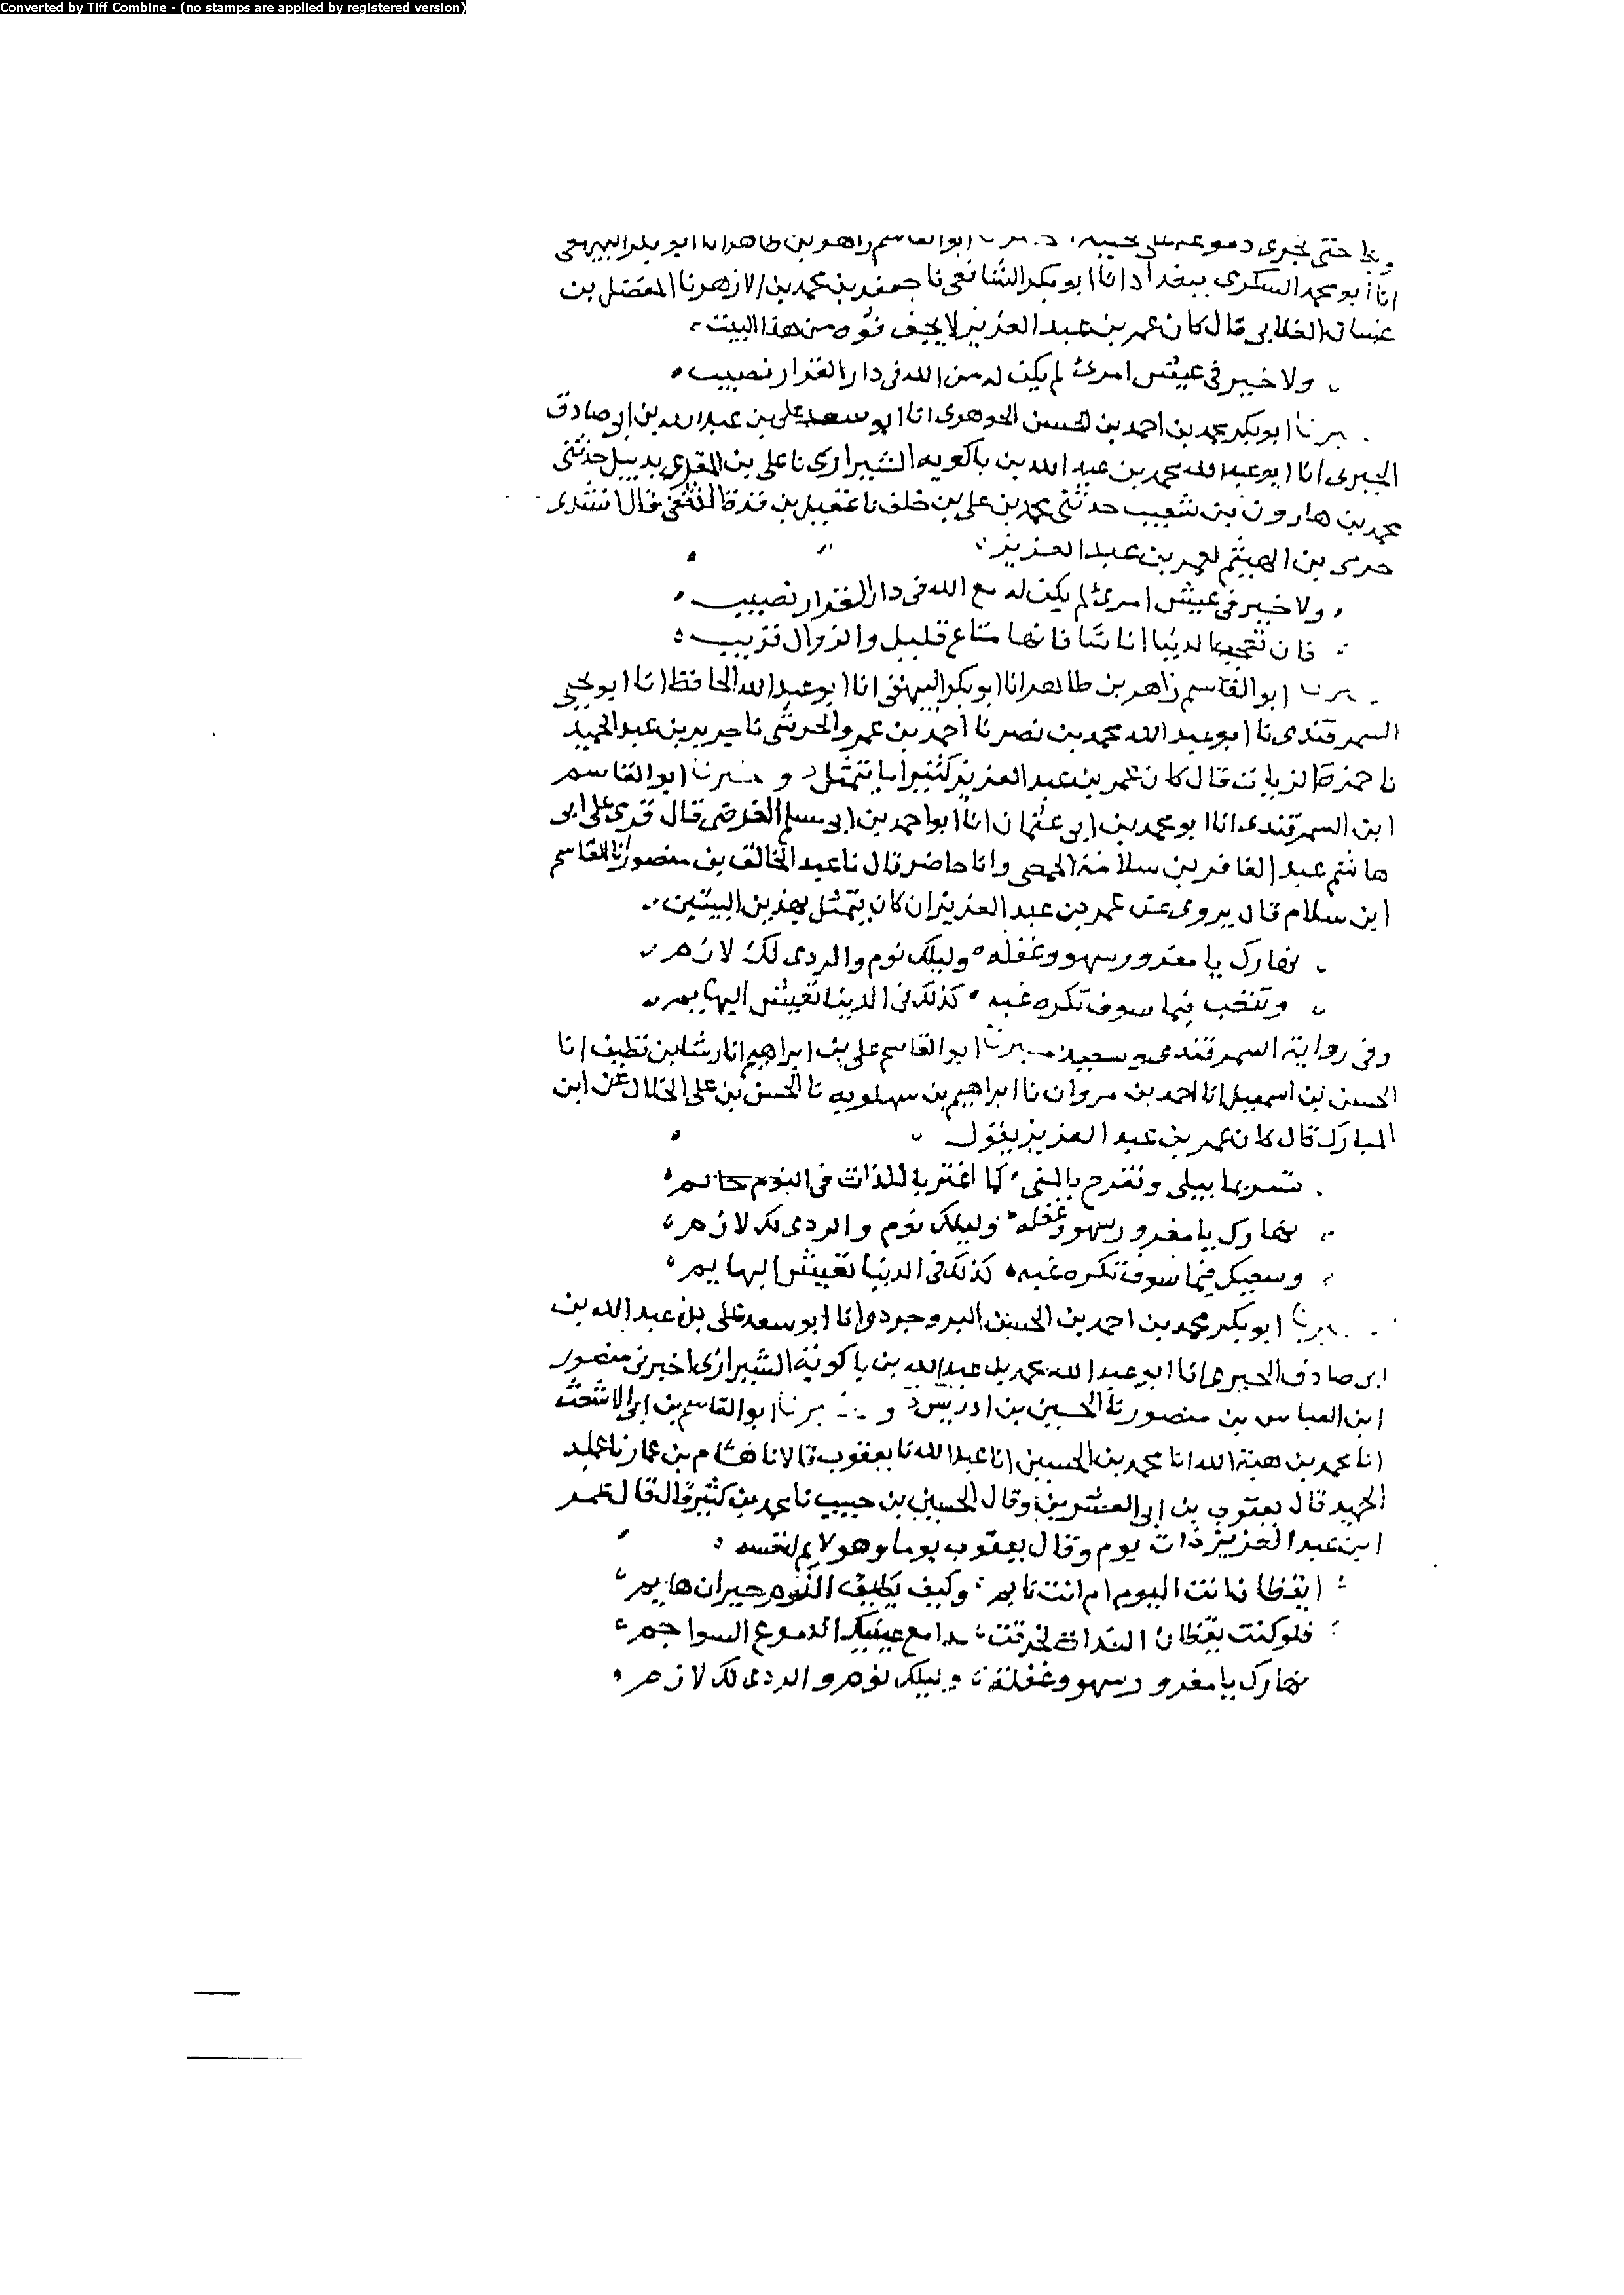 Converted by Tiff Combine - (no stamps are applied by registered version)
حتى تجرى دموعه على ابو القاسم زاهر بن طاهر انا ابو بكر البيهقى
انا ابو محمد السكرى ببغداد انا ابو بكر الشافعى نا جعفر بن محمد بن الازهر نا المفضل بن
غسان الغلابى قال كان عمر بن عبد العزيز لا يجف فوه من هذا البيت
ولا خير فى عيش امرئ لم يكن له من الله فى دار القرار نصيب
ابو بكر محمد بن احمد بن الحسن الجوهرى انا ابو سعد على بن عبد الله بن ابى صادق
الحيرى انا ابو عبد الله محمد بن عبد الله بن باكويه الشيرازى نا على بن المقرى بدبيل حدثنى
محمد بن هارون بن شعيب حدثنى محمد بن على بن خلف نا عقيل بن قال انشدنى
حرمى بن الهيثم لعمر بن عبد العزيز
ولا خير فى عيش امرئ لم يكن له مع الله فى دار القرار نصيب
فان تعجب الدنيا اناسا فانها متاع قليل والزوال قريب
ابو القاسم زاهر بن طاهر انا ابو بكر البيهقى انا ابو عبد الله الحافظ انا ابو يحيى
السمرقندى نا ابو عبد الله محمد بن نصر نا احمد بن عمرو الحرشى نا جرير بن عبد الحميد
نا حمزة الزيات قال كان عمر بن عبد العزيز كثيرا ما يتمثل ابو القاسم
ابن السمرقندى انا ابو محمد بن ابى عثمان انا ابو احمد بن ابى مسلم الفرضى قال قرى على ابى
هاشم عبد الغافر بن سلامة الحمصى وانا حاضر قال نا عبد الخالق بن منصور نا القاسم
ابن سلام قال يروى عن عمر بن عبد العزيز ان كان يتمثل بهذين البيتين
نهارك يا مغرور سهو وغفله وليلك نوم والردى لك لازم
وتنصب فيما سوف تكره غبه كذلك فى الدنيا تعيش البهايم
وفى رواية السمرقندى وسعيك ابو القاسم على بن ابراهيم انا رشا بن نظيف انا
الحسن بن اسمعيل انا احمد بن مروان نا ابراهيم بن سهلويه نا الحسن بن على الخلال عن ابن
المبارك قال كان عمر بن عبد العزيز يقول
تسر بما يبلى وتفرح بالمنى كما اغتر باللذات فى النوم حالم
نهارك يا مغرور سهو وغفله وليلك نوم والردى لك لازم
وسعيك فيما سوف تكره غبه كذلك فى الدنيا تعيش البهايم
ابو بكر محمد بن احمد بن الحسن البروجردى انا ابو سعد على بن عبد الله بن
ابى صادق الحيرى انا ابو عبد الله محمد بن عبد الله بن باكويه الشيرازى اخبرنى منصور
ابن العباس بن منصور نا الحسين بن ادريس ابو القاسم بن ابى الاشعث
انا محمد بن هبة الله انا محمد بن الحسين انا عبد الله نا يعقوب قالا نا هشام بن عمار نا عبد
الحميد قال يعقوب بن ابى العشرين وقال الحسين بن حبيب نا محمد بن كثير قال قال عمر
ابن عبد العزيز ذات يوم وقال يعقوب يوما وهو لايم لنفسه
ايقظان انت اليوم ام انت نايم وكيف يطيق النوم حيران هايم
فلو كنت يقظان الغداة لخرقت مدامع عينيك الدموع السواجم
نهارك يا مغرور سهو وغفلة وليلك نوم والردى لك لازم